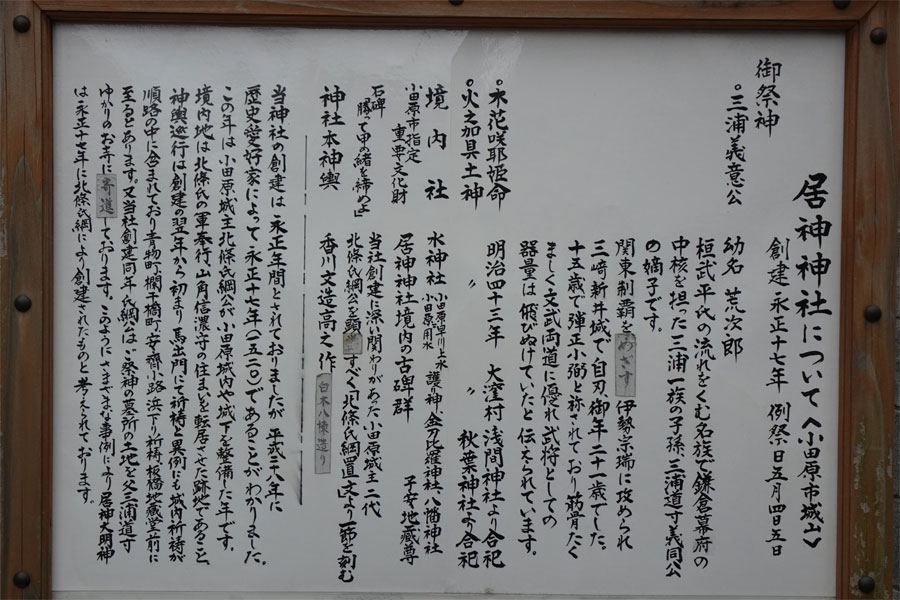 居神神社について〈小田原市城山〉
創建・永正十七年 例祭日五月四日五日
御祭神
。三浦義意公
幼名 荒次郎
桓武平氏の流れをくむ名族で鎌倉幕府の
中核を担った三浦一族の子孫、三浦道寸義同公
の嫡子です。
関東制覇をめざす伊勢宗瑞に攻められ
三崎新井城で自刃、御年二十一歳でした。
十五歳で弾正小弼と称されており筋骨たく
ましく文武両道に優れ、武将としての
器量は飛びぬけていたと伝えられています。
。木花咲耶姫命 明治四十三年 大窪村浅間神社より合祀
。火之加具土神 〃 〃 秋葉神社より合祀
境内社 水神社 小田原早川上水 小田原用水 護り神、金刀比羅神社、八幡神社
子安地蔵尊
小田原市指定 重要文化財 居神神社境内の古碑群
石碑 勝って甲の緒を締めよ」 当社創建に深い関わりがあった小田原城主二代
北條氏綱公を顕すべく「北條氏綱置文」より一節を刻む
神社本神輿 香川文造高之作 白木八棟造り
当神社の創建は永正年間とされておりましたが平成二十八年に
歴史愛好家によって永正十七年(一五二〇)であることがわかりました。
この年は小田原城主北條氏綱公が小田原城内や城下を整備した年です。
境内地は北條氏の軍奉行、山角信濃守の住まいを転居させた跡地であること、
神輿巡行は創建の翌年から初まり、馬出門にて祈祷と異例にも城内祈祷が
順路の中に含まれており青物町、欄干橋町、安齊小路、浜下り祈祷、板橋地蔵堂前に
至るとあります。又当社創建同年、氏綱公はご祭神の墓所の土地を父三浦道寸
ゆかりのお寺に寄進しております。このようにさまざまな事例により居神大明神
は永正十七年に北條氏綱により創建されたものと考えられております。